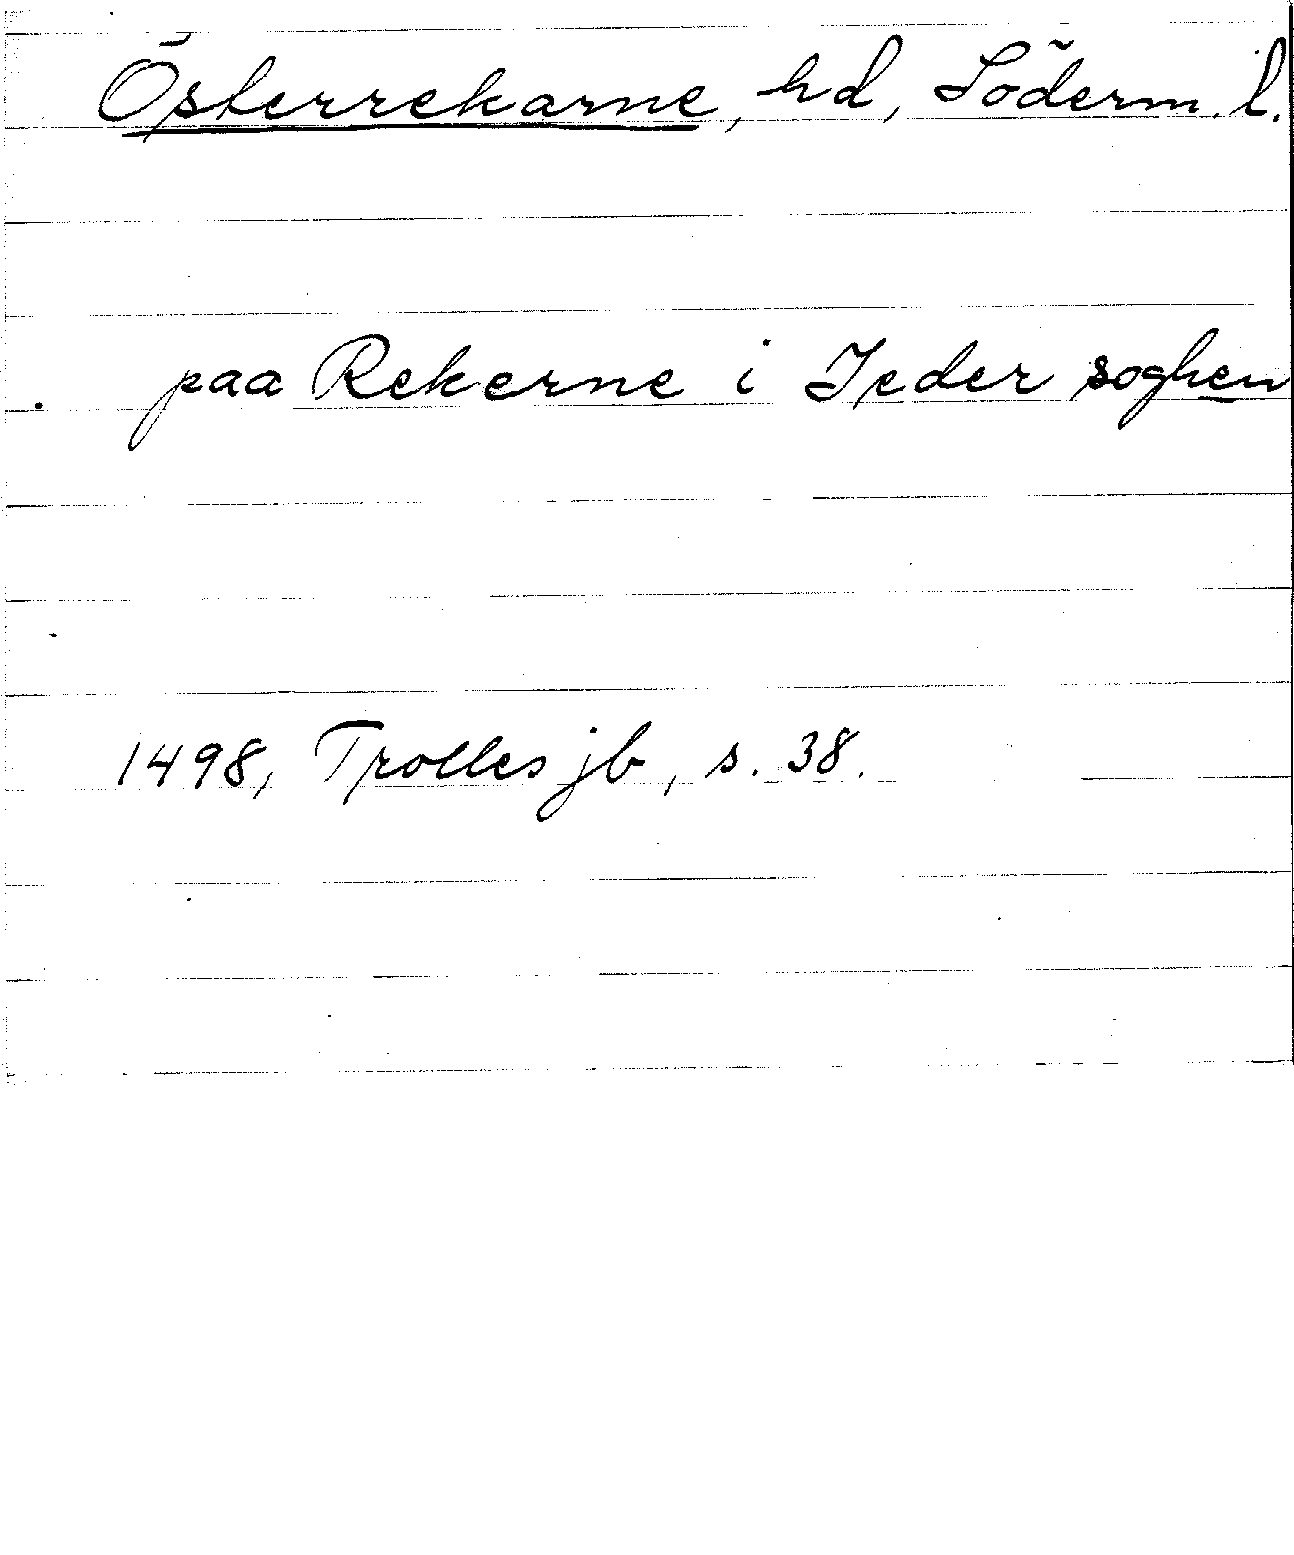 Österrekarne, hd, Söderm. l.
paa Rekerne i Jeder soghen
1498, Trolles jb, s. 38.